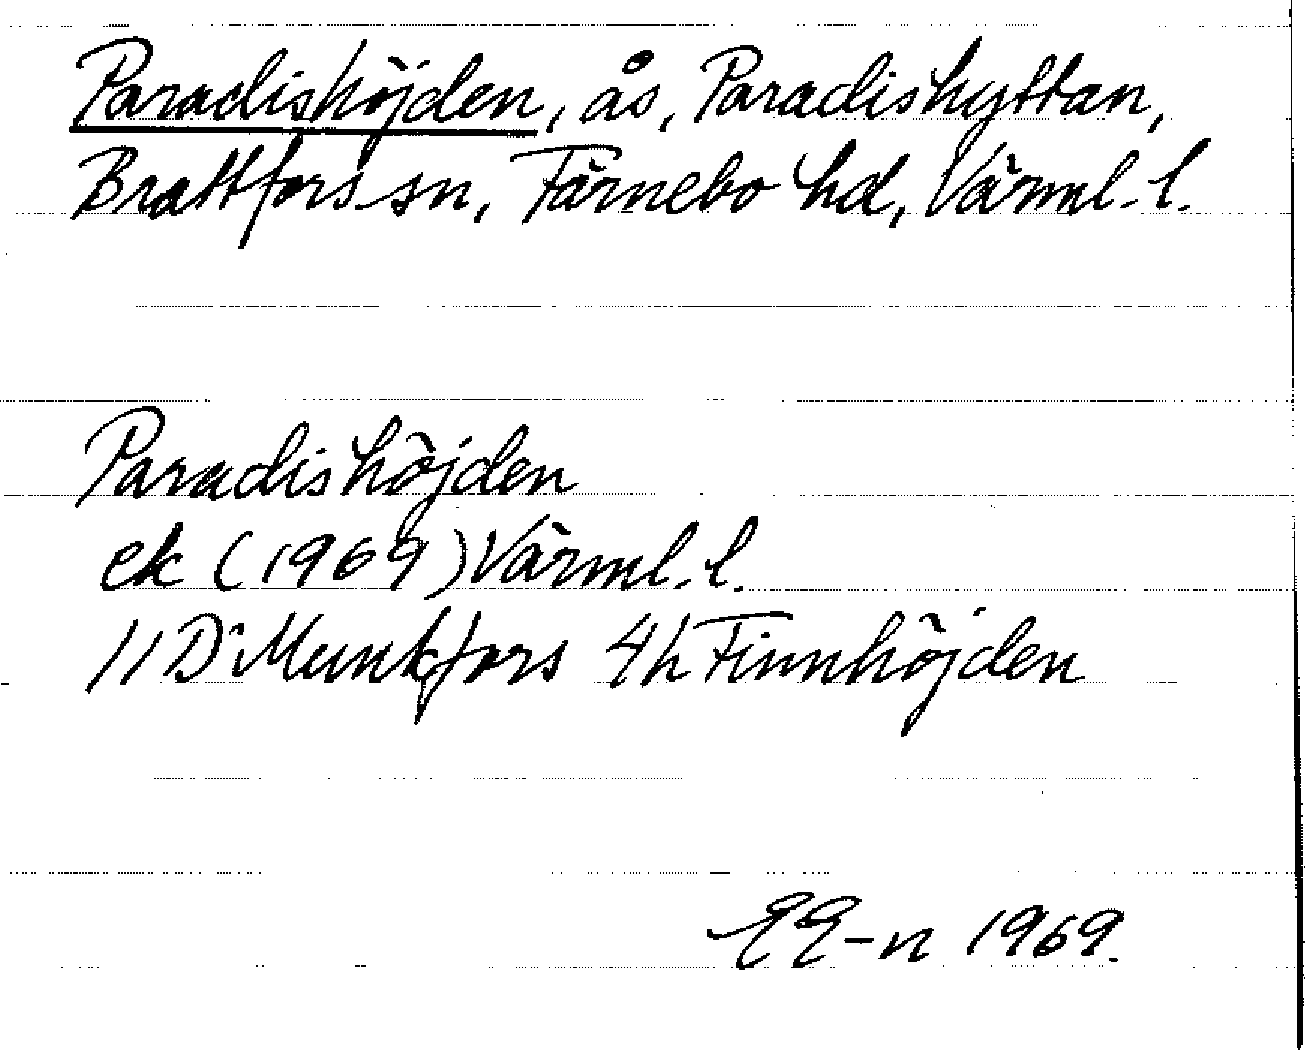 Paradishöjden, ås, Paradishyttan,
Brattfors sn, Färnebo hd, Värml. l.
Paradishöjden
ek (1969) Värml. l.
11D Munkfors 4h Finnhöjden
EE-n 1969.